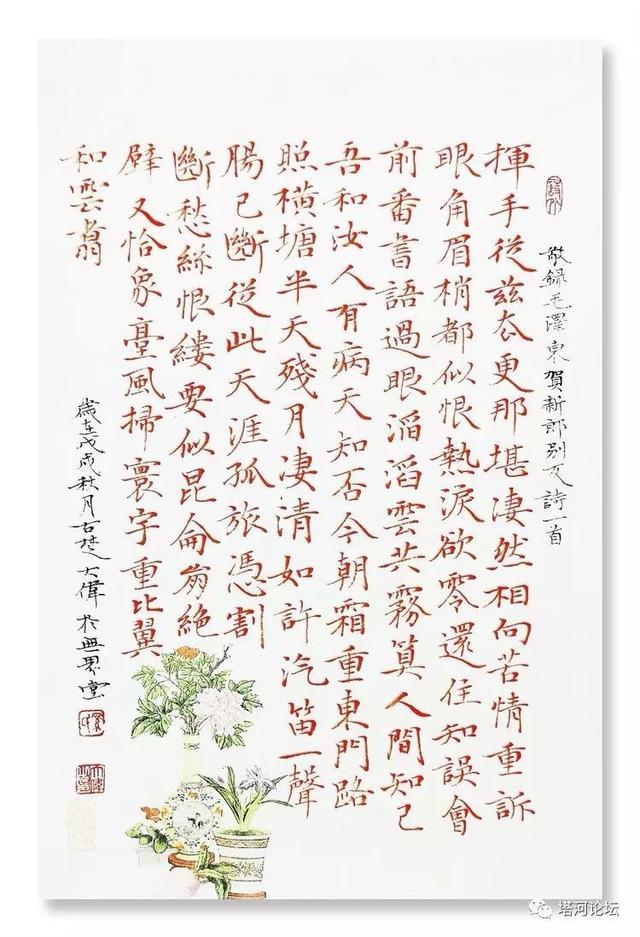 敬錄毛澤東賀新郎別友詩一首
揮手從兹去更那堪凄然相向苦情重訴
眼角眉梢都似恨熱淚欲零還住知誤會
前番書語過眼滔滔雲共霧算人間知己
吾和汝人有病天知否今朝霜重東門路
照橫塘半天殘月凄清如許汽笛一聲
腸已斷從此天涯孤旅憑割
斷愁絲恨縷要似昆侖崩絕
壁又恰象臺風掃寰宇重比翼
和雲翥
歲在戊戌秋月古楚大偉於無界堂
塔河论坛